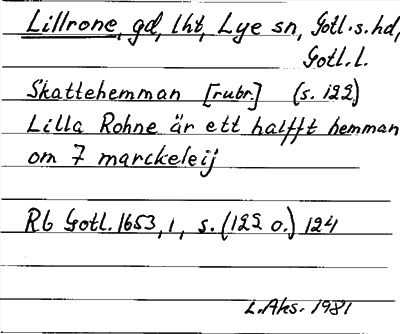 Lillrone, gd, lht, Lye sn, Gotl.s.hd,
Gotl.l.
Skattehemman [rubr.] (s. 122)
Lilla Rohne är ett halfft hemman
om 7 marckeleij
Rb Gotl. 1653, 1, s. (122 o.) 124
L.Aks. 1981